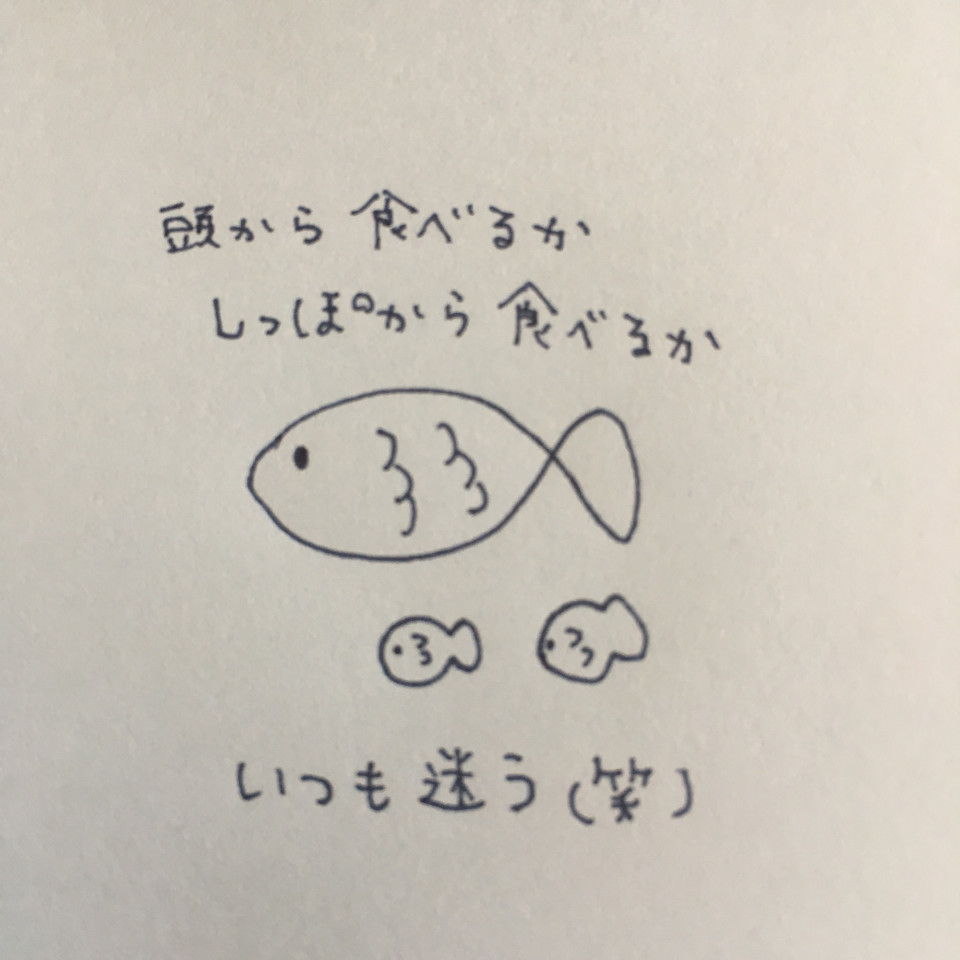 頭から食べるか
しっぽから食べるか
いつも迷う(笑)